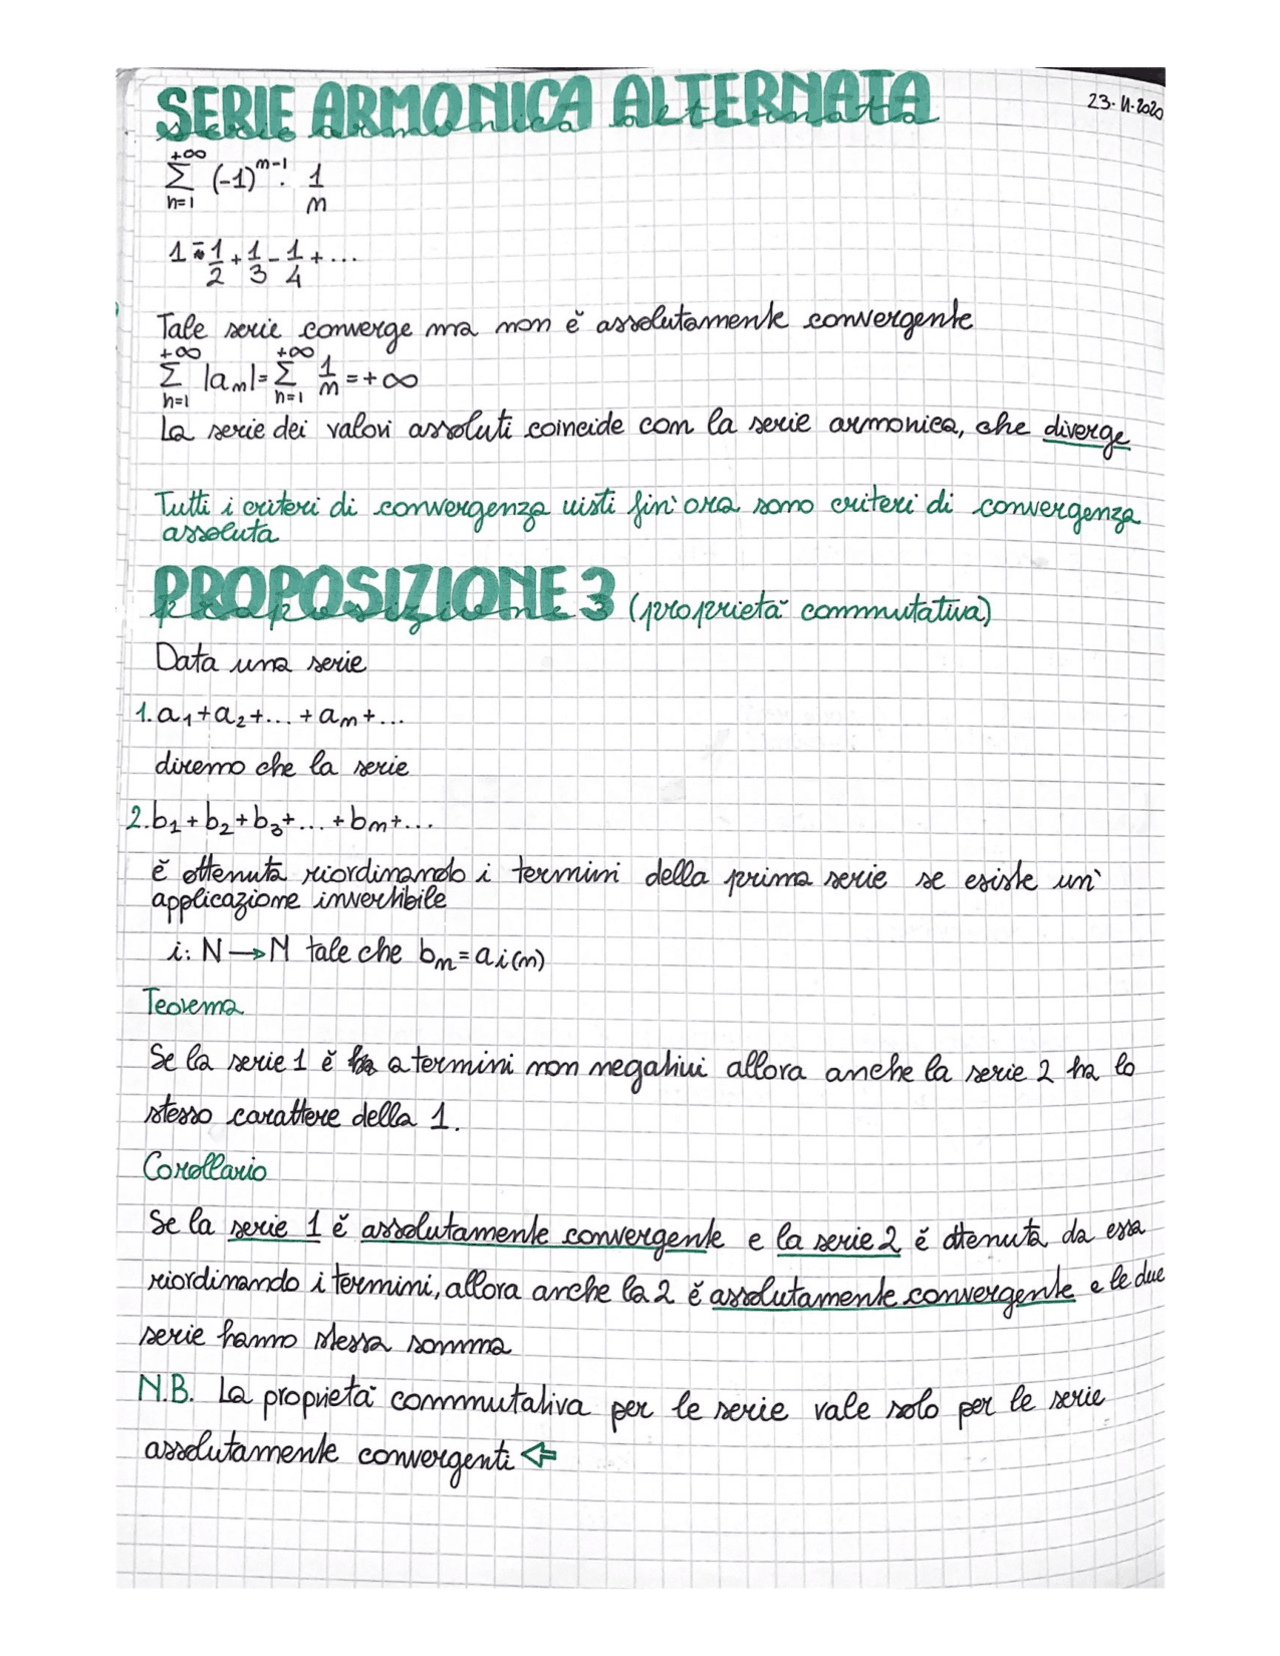 SERIE ARMONICA ALTERNATA
serie armonica alternata
23.11.2020
+∞
Σ (-1)^(n-1) · 1/n
n=1
1 - 1/2 + 1/3 - 1/4 + ...
Tale serie converge ma non è assolutamente convergente
+∞ +∞
Σ |an| = Σ 1/n = +∞
n=1 n=1
La serie dei valori assoluti coincide con la serie armonica, che diverge
Tutti i criteri di convergenza visti fin'ora sono criteri di convergenza
assoluta
PROPOSIZIONE 3 (proprietà commutativa)
proposizione
Data una serie
1. a₁+a₂+... +an+...
diremo che la serie
2. b₁+b₂+b₃+... +bn+...
è ottenuta riordinando i termini della prima serie se esiste un'
applicazione invertibile
i: N → N tale che bn = a i(n)
Teorema
Se la serie 1 è a termini non negativi allora anche la serie 2 ha lo
stesso carattere della 1.
Corollario
Se la serie 1 è assolutamente convergente e la serie 2 è ottenuta da essa
riordinando i termini, allora anche la 2 è assolutamente convergente e le due
serie hanno stessa somma
N.B. La proprietà commutativa per le serie vale solo per le serie
assolutamente convergenti ⇐